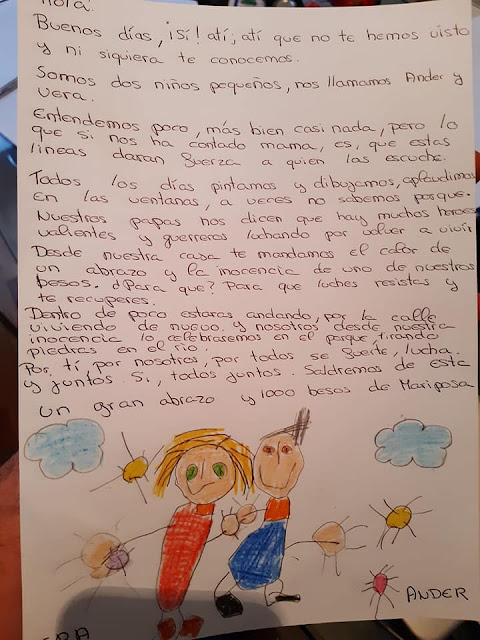 Hola.
Buenos días, ¡Sí! atí, atí que no te hemos visto
y ni siquiera te conocemos.
Somos dos niños pequeños, nos llamamos Ander y
Vera.
Entendemos poco, más bien casi nada, pero lo
que si nos ha contado mama, es, que estas
líneas daran fuerza a quien las escuche.
Todos los días pintamos y dibujamos, aplaudimos
en las ventanas, a veces no sabemos porque.
Nuestros papas nos dicen que hay muchos heroes
valientes y guerreros luchando por volver a vivir
Desde nuestra casa te mandamos el calor de
un abrazo y la inocencia de uno de nuestros
besos. ¿Para que? Para que luches resistas y
te recuperes.
Dentro de poco estaras andando, por la calle
viviendo de nuevo. y nosotros desde nuestra
inocencia lo celebraremos en el parque, tirando
piedras en el río.
Por tí, por nosotros, por todos se fuerte, lucha.
y juntos. Si, todos juntos. Saldremos de esta
un gran abrazo y 1000 besos de Mariposa
ERA
ANDER